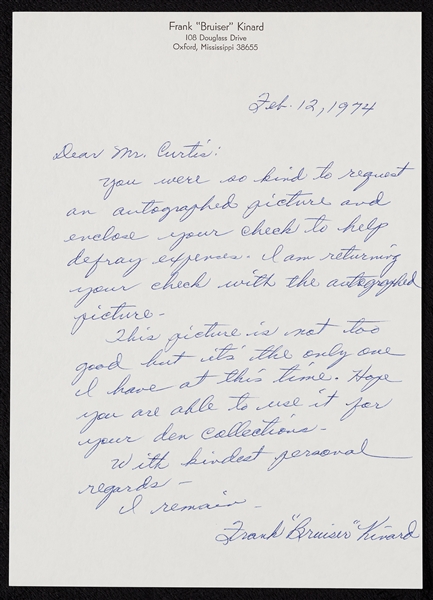 Frank "Bruiser" Kinard
108 Douglass Drive
Oxford, Mississippi 38655
Feb. 12, 1974
Dear Mr. Curtis:
You were so kind to request
an autographed picture and
enclose your check to help
defray expenses. I am returning
your check with the autographed
picture-
This picture is not too
good but it's the only one
I have at this time. Hope
you are able to use it for
your den collections-
With kindest personal
regards-
I remain-
Frank "Bruiser" Kinard